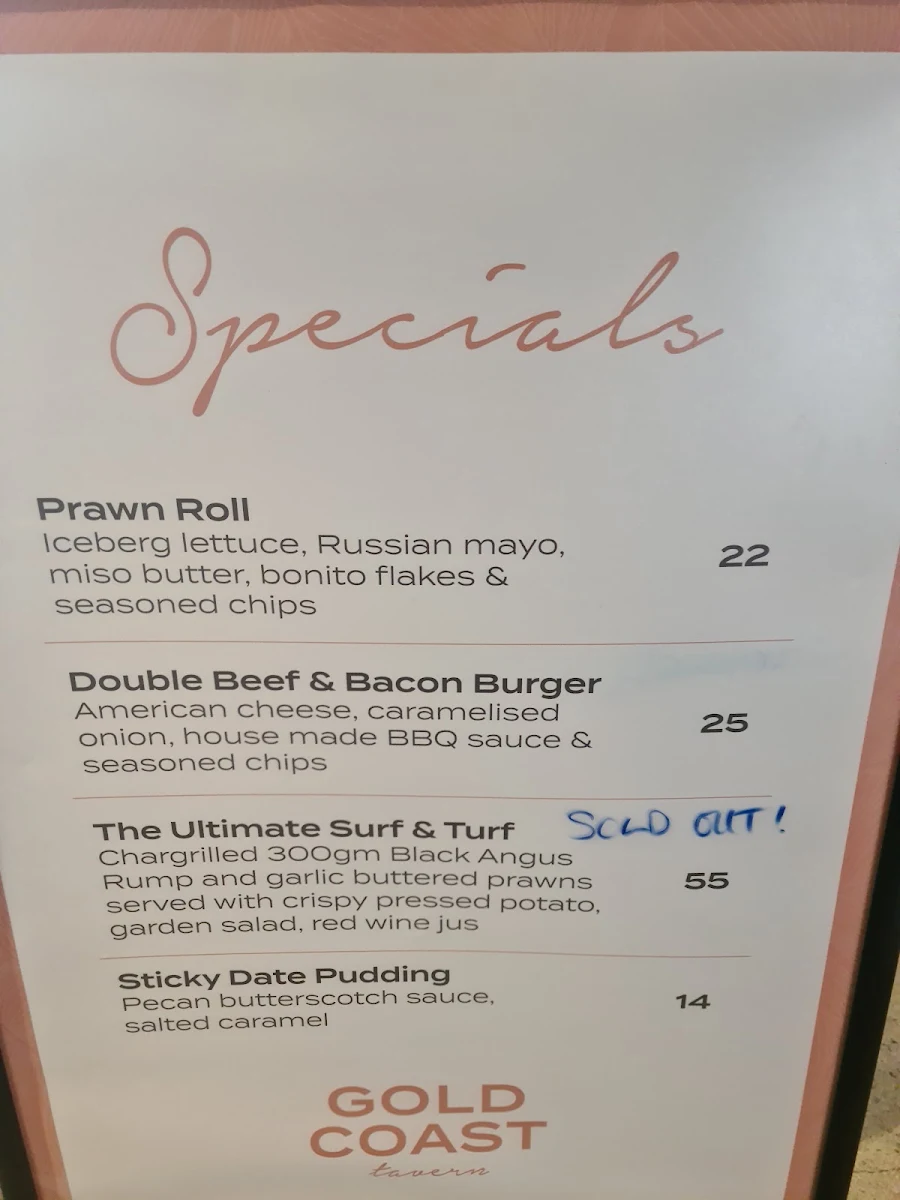 Specials
Prawn Roll
Iceberg lettuce, Russian mayo,
miso butter, bonito flakes &
seasoned chips
22
Double Beef & Bacon Burger
American cheese, caramelised
onion, house made BBQ sauce &
seasoned chips
25
The Ultimate Surf & Turf
SOLD OUT!
Chargrilled 300gm Black Angus
Rump and garlic buttered prawns
served with crispy pressed potato,
garden salad, red wine jus
55
Sticky Date Pudding
Pecan butterscotch sauce,
salted caramel
14
GOLD
COAST
tavern